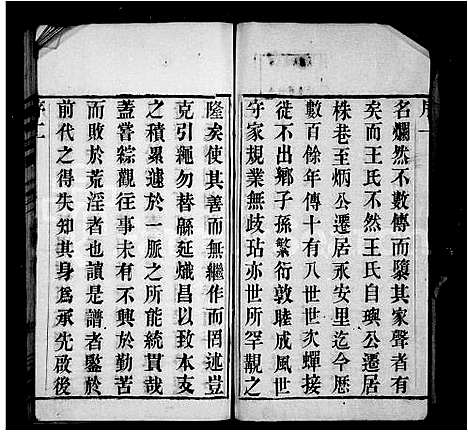 序一
名爛然不數傳而隳其家聲者有
矣而王氏不然王氏自璵公遷居
株巷至炳公遷居永安里迄今歷
數百餘年傳十有八世世次蟬接
徙不出鄉子孫繁衍敦睦成風世
守家規業無歧玷亦世所罕覯之
隆矣使其善而無繼作而無述豈
克引繩勿替緜延熾昌以致本支
之積累遽於一脈之所能統貫哉
蓋嘗綜觀往事未有不興於勤苦
而敗於荒淫者也讀是譜者鑒於
前代之得失知其身為承先啟後
序二